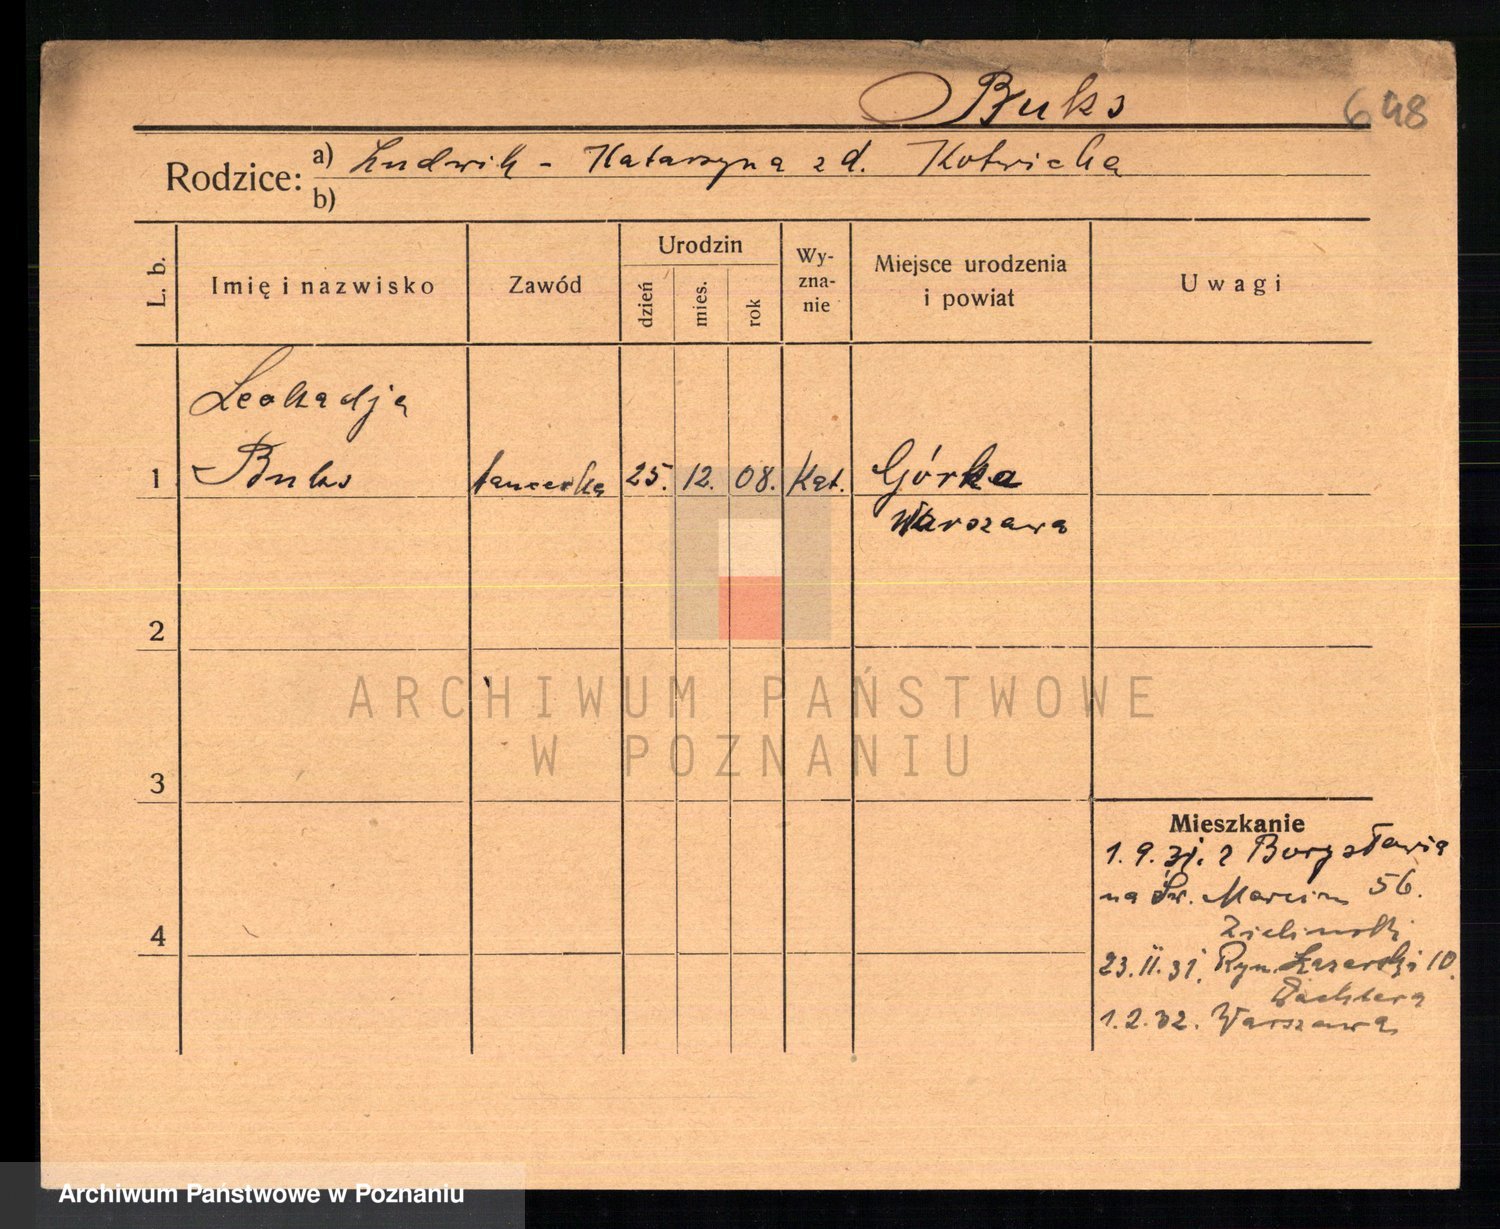 Buks 648
Rodzice: a) Ludwik - Katarzyna z d. Kotwicka
b)
L. b. Imię i nazwisko Zawód Urodzin dzień mies. rok Wy-zna-nie Miejsce urodzenia i powiat Uwagi
Leokadja
1 Buks tancerka 25. 12. 08. Kat. Górka
Warszawa
2
ARCHIWUM PAŃSTWOWE
W POZNANIU
3
Mieszkanie
1.9.31. z Borysławia
na Św. Marcin 56.
4 Zielinski
23.II.31. Ryn. Łazarski 10.
1.2.32. Warszawa
Archiwum Państwowe w Poznaniu